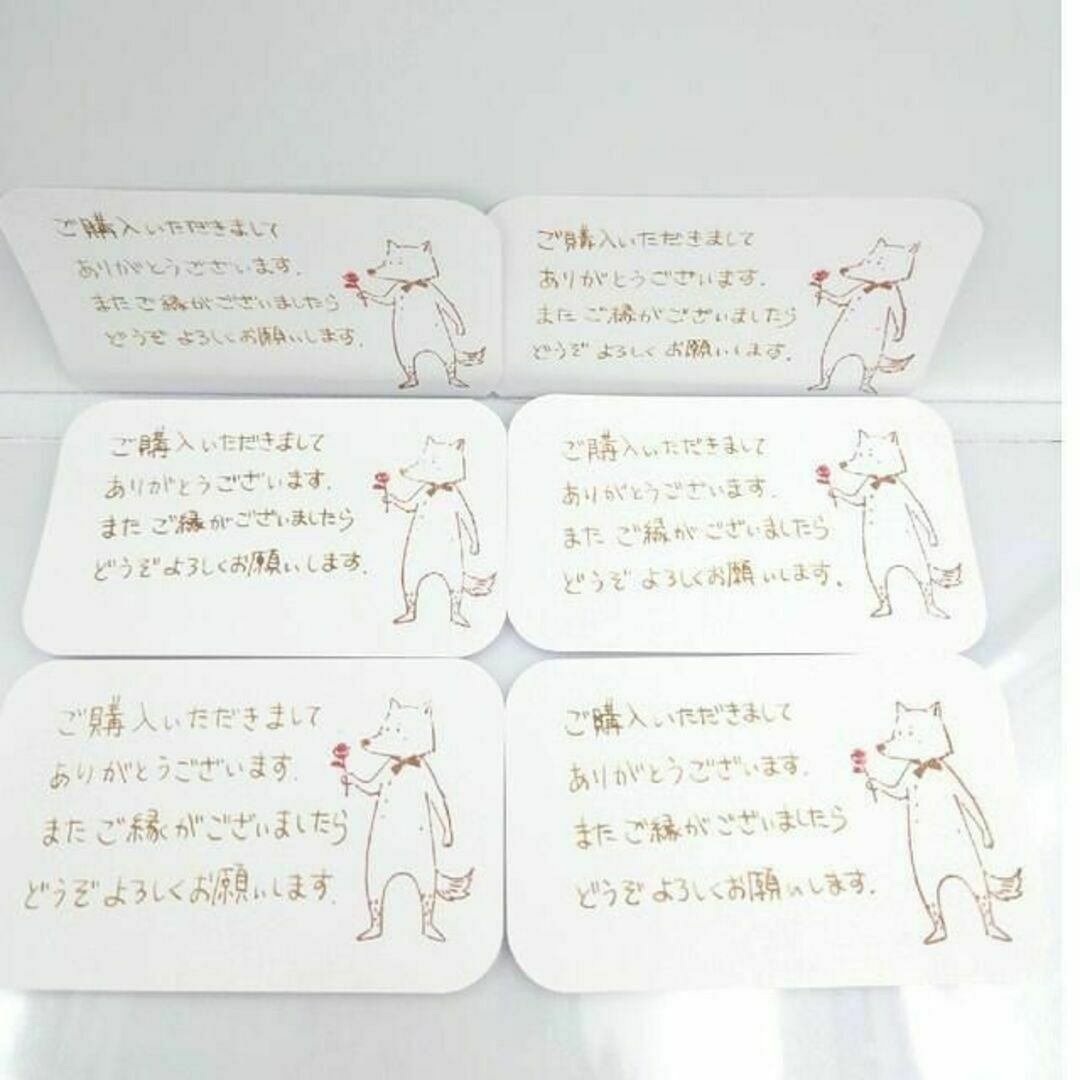 ご購入いただきまして
ありがとうございます.
またご縁がございましたら
どうぞよろしくお願いします.
ご購入いただきまして
ありがとうございます.
またご縁がございましたら
どうぞよろしくお願いします.
ご購入いただきまして
ありがとうございます.
またご縁がございましたら
どうぞよろしくお願いします.
ご購入いただきまして
ありがとうございます.
またご縁がございましたら
どうぞよろしくお願いします.
ご購入いただきまして
ありがとうございます.
またご縁がございましたら
どうぞよろしくお願いします.
ご購入いただきまして
ありがとうございます.
またご縁がございましたら
どうぞよろしくお願いします.